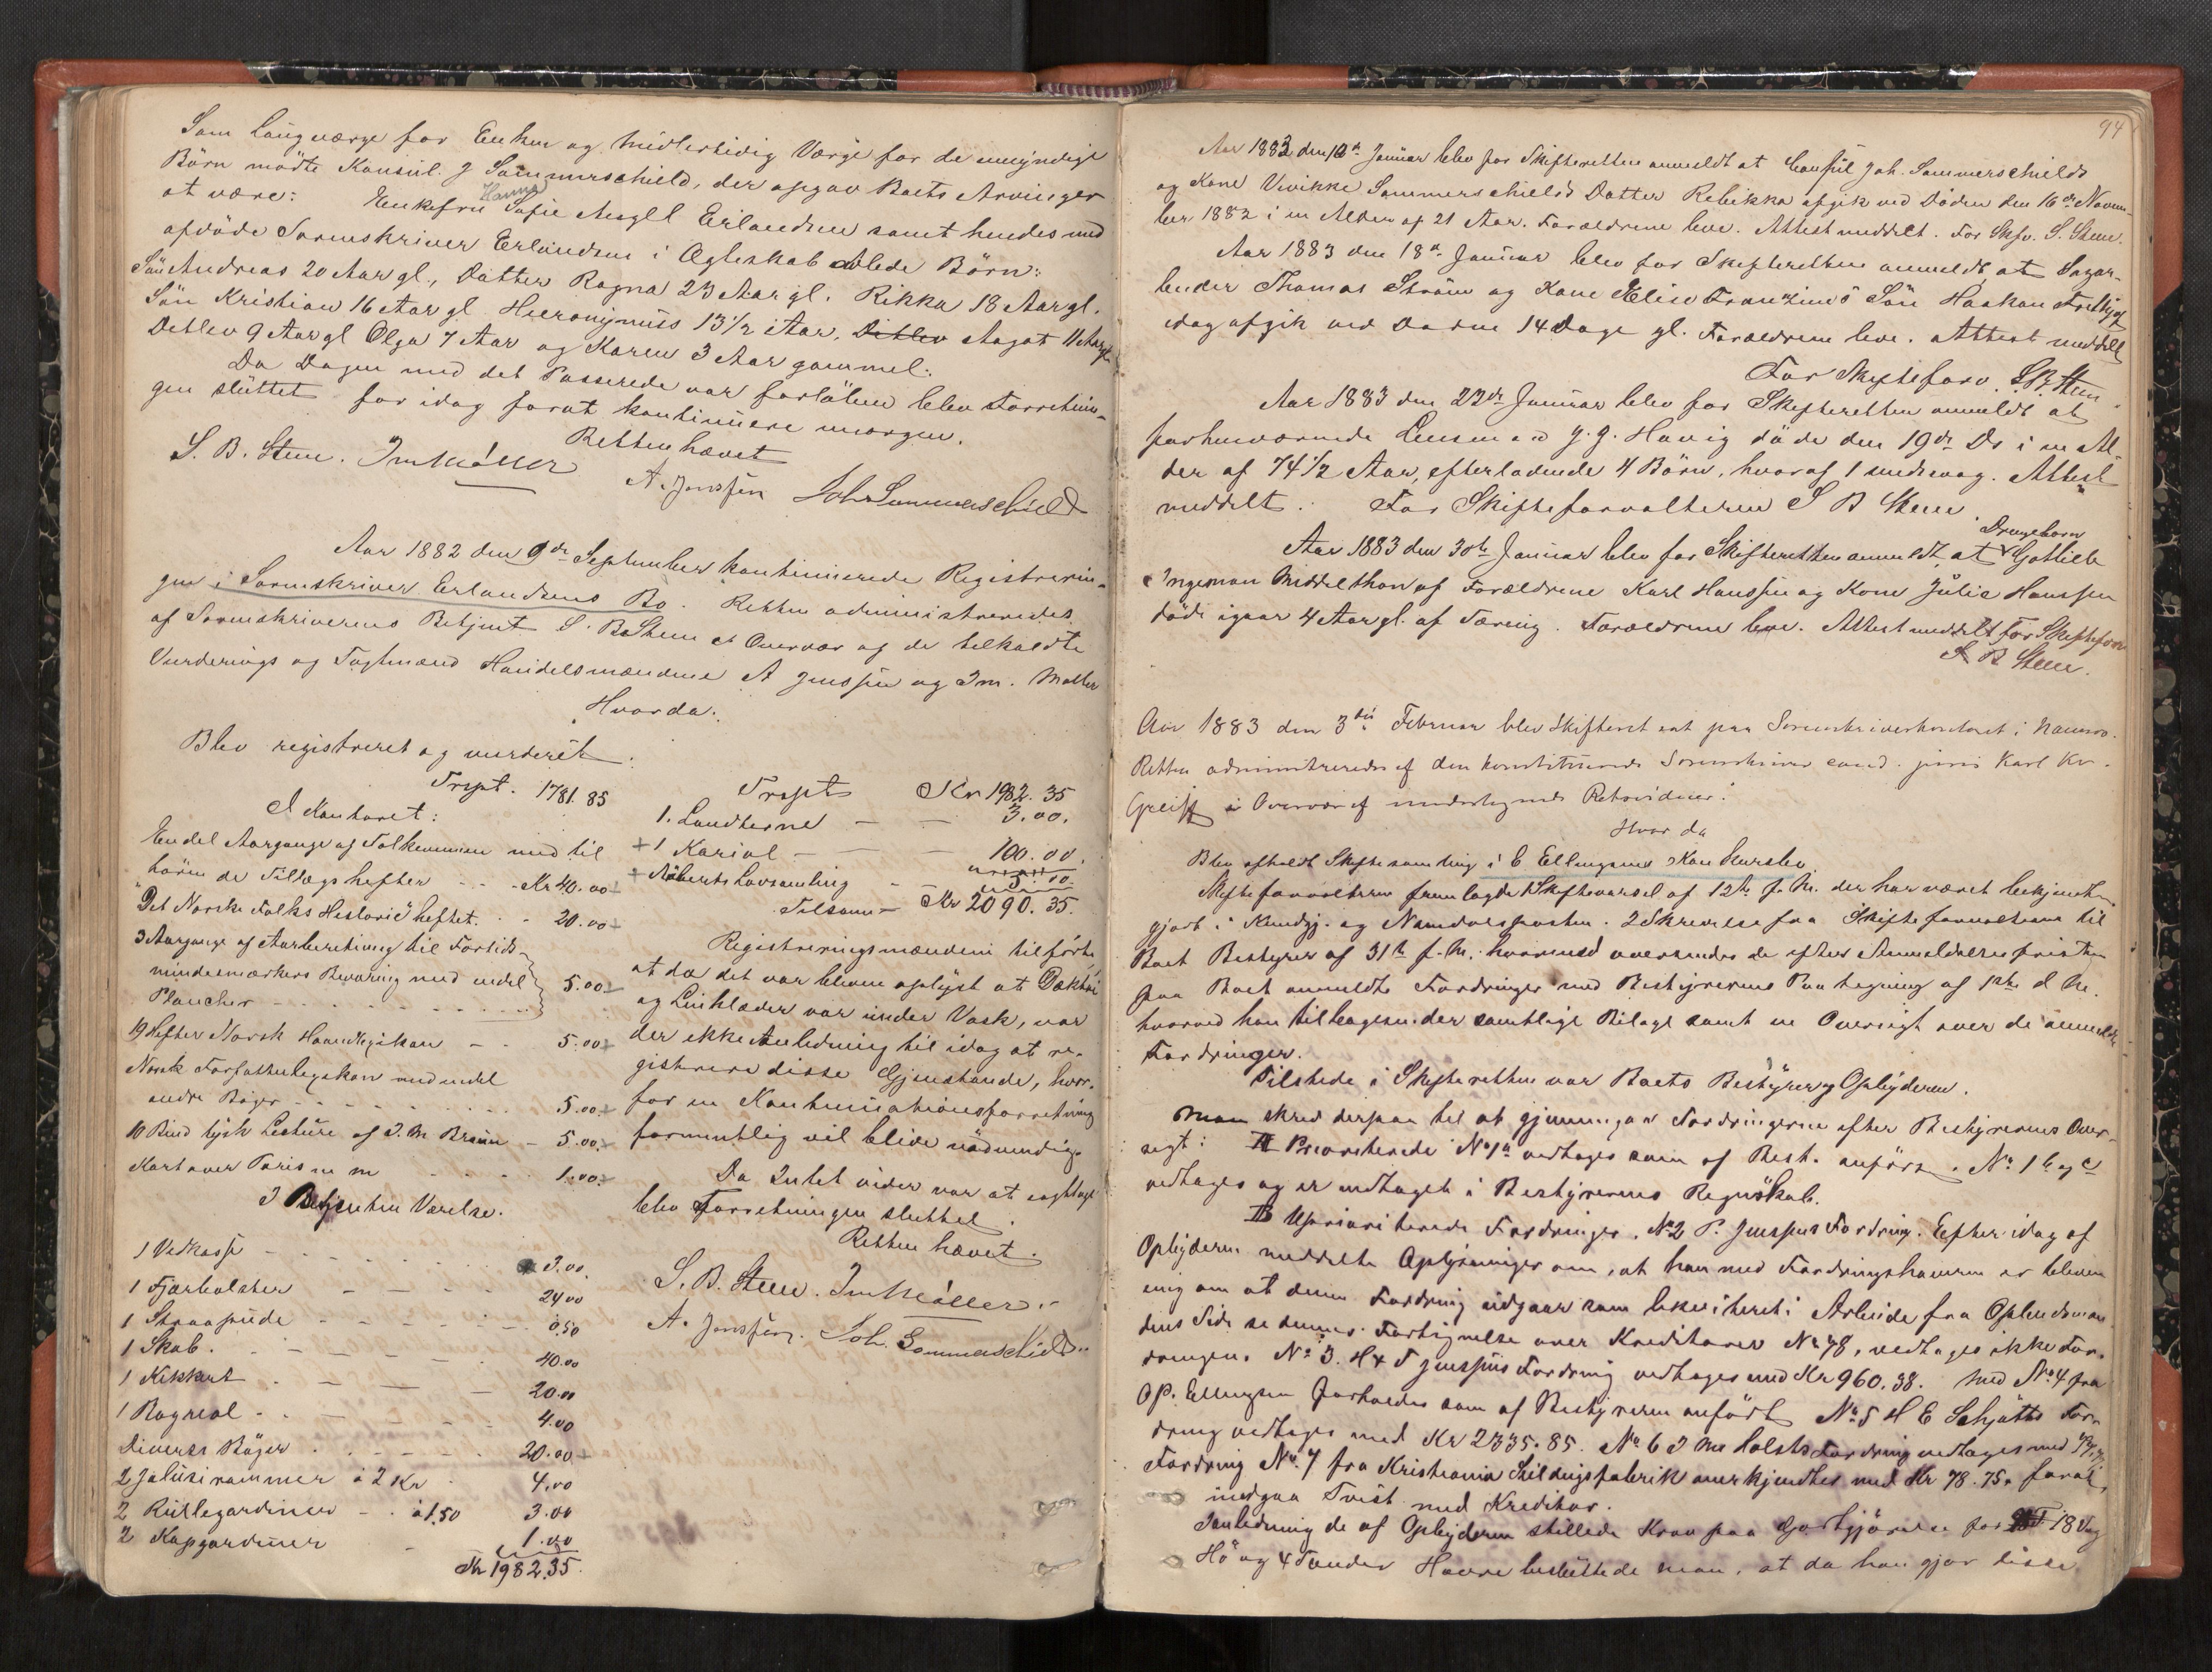 Som Laugværge for Enken og midlertidig Værge for de umyndige
Börn mödte Konsul J Sommerschield, der opgav Boets Arvinger
at være: Enkefru Hanna Sofie Aagl Erlandsen samt hendes med
afdöde Sorenskriver Erlandsen i Ægteskab avlede Börn:
Sön Andreas 20 Aar gl., Datter Ragna 23 Aar gl. Rikka 18 Aar gl.
Sön Kristian 16 Aar gl Hieronymus 13 1/2 Aar, Ditlev Aagot 11 Aar gl
Detlev 9 Aar gl Olga 7 Aar og Karen 3 Aar gammel.
Da Dagen med det Passerede var forlöben blev Forretnin-
gen sluttet for idag forat kontinuere imorgen.
Retten hævet
S. B. Steen. Im Möller
A. Jenssen Joh Sommerschield
Aar 1882 den 9de September kontinuerede Registrerin-
gen i Sorenskriver Erlandsens Bo. Retten administreredes
af Sorenskriverens Betjent S. B. Steen i Overvær af de tilkaldte
Vurderings og Tagtmænd Handelsmændene A Jenssen og Im. Møller
Hvorda:
Blev registreret og vurderet.
Trspt. 1781.85
I Kontoret:
Endel Aargange af Folkevennen med til
hören de Tillægshefter - - Kr 40.00
"Det Norske Folks Historie" heftet. - 20.00
3 Aargange af Aarberetning til Fortids-
mindesmærkers Bevaring med endel
Plancher - - - 5.00
19 Hefter Norsk Haandlexikon - - 5.00
Norsk Forfatterlexikon med endel
andre Böger - - - 5.00
10 Bind tysk Lecture af I. M Braun - 5.00
Kart over Paris m m - - - 1.00
I Betjenten Værelse.
1 Vedkasse - - - 3.00
1 Fjærbolster - - - 24 00
1 Straapude - - - 0.50
1 Skab. - - - 40.00
1 Kikkert - - - 20.00
1 Bogreol - - - 4.00
Diverse Böger - - - 20.00
2 Jalusirammer à 2 Kr 4.00
2 Rullegardiner - à 1.50 3.00
2 Kapgardiner - 1.00
Kr 1982.35.
Trspt Kr 1982.35
1. Landterne - - 3.00.
+ 1 Kariol - - 100.00.
+ Möberts Lovsamling - 5.00
Tilsam - Kr 2090.35.
Registreringsmændene tilförte
at da det var bleven oplyst at Dæktöi
og Linklæder var under Vask, var
der ikke Anledning til idag at re-
gistrere disse Gjenstande, hvor-
for en Kontinuationsforretning
formentlig vil blive nödvendig.
Da Intet vider var at iagttage
blev Forretningen sluttet.
Retten hævet.
S. B. Steen. Im Möller.
A. Jenssen. Joh. Sommerschield.
94
Aar 1883 den 12te Januar blev for Skifteretten anmeldt at Consul Joh. Sommerschields
og Kone Vivikke Sommerschields Datter Rebikka afgik ved Döden den 16de Novem-
ber 1882 i en Alder af 21 Aar. Forældrene leve. Attest meddelt. For Skfv. S. Steen.
Aar 1883 den 18de Januar blev for Skifteretten anmeldt at Sagar-
beider Thomas Ström og Kone Elise Franzines Sön Haakon Frithjof
idag afgik ved Døden 14 Dage gl. Forældrene leve. Attest meddelt
For Skifteforv. S B. Steen.
Aar 1883 den 22de Januar blev for Skifteretten anmeldt at
forhenværende Lensmand J. J. Havig döde den 19de Ds i en Al-
der af 74 1/2 Aar, efterladende 4 Börn, hvoraf 1 sindssvag. Attest
meddelt. For Skifteforvalteren S B Steen
Aar 1883 den 30te Januar blev for Skifteretten anmeldt, at Drengebarn Gotlieb
Ingeman Middelthon af Forældrene Karl Hanssen og Kone Julie Hanssen
döde igaar 4 Aar gl. af Tæring. Forældrene leve. Attest meddelt For Skifteforv
S B Steen.
Aar 1883 den 3die Februar blev Skifteret sat paa Sorenskriverkontoret i Namsos.
Retten administreredes af den konstituerede Sorenskriver cand. juris Karl Kr.
Greiff i Overvær af undertegnede Retsvidner:
Hvor da
Blev afholdt Skiftesamling i C Ellingsens Konkursbo
Skifteforvalteren fremlagde Skiftevarsel af 12te f. M. der har været bekjendt-
gjort i Kundgj. og Namdalsposten. 2 Skrivelse fra Skifteforvalteren til
Boet Bestyrer af 31te f. M. hvormed oversendes de efter Anmeldelsesfristen
paa Boet anmeldte Fordringer med Bestyrerens Paategning af 1ste d M.
hvorved han tilbagesender samtlige Bilage samt en Oversigt over de anmeldte
Fordringer.
Tilstede i Skifteretten var Boets Bestyrer og Opbyderen.
Man skred derpaa til at gjennemgaa Fordringerne efter Bestyrerens Over-
sigt: A Prioriterede No 1a vedtages som af Best. anfört. No 1 b og c
vedtages og er indtaget i Bestyrerens Regnskab.
B Uprioriterede Fordringer. No 2 P. Jenssens Fordring. Efter idag af
Opbyderen meddelte Oplysninger om, at han med Fordringshaveren er bleven
enig om at denne Fordring udgaar som likvideret i Arbeide fra Opbudsman-
dens Side se dennes Fortegnelse over Kreditorer No 78, vedtages ikke For-
dringen. No 3. H & F Jenssens Fordring vedtages med Kr 960.38. Med No 4 fra
O P. Ellingsen forholdes som af Bestyreren anfört No 5 H E Schjötts For-
dring vedtages med Kr 2335.85. No 6 I M Holsts Fordring vedtages med
Fordring No 7 fra Kristiania Sildingsfabrik anerkjendtes med Kr 78.75. forat
undgaa Tvist med Kreditor.
I Anledning de af Opbyderen stillede Krav paa Godtgjörelse for 18 Vog
Hö og 4 Tönder Havre besluttede man, at da han gjør disse